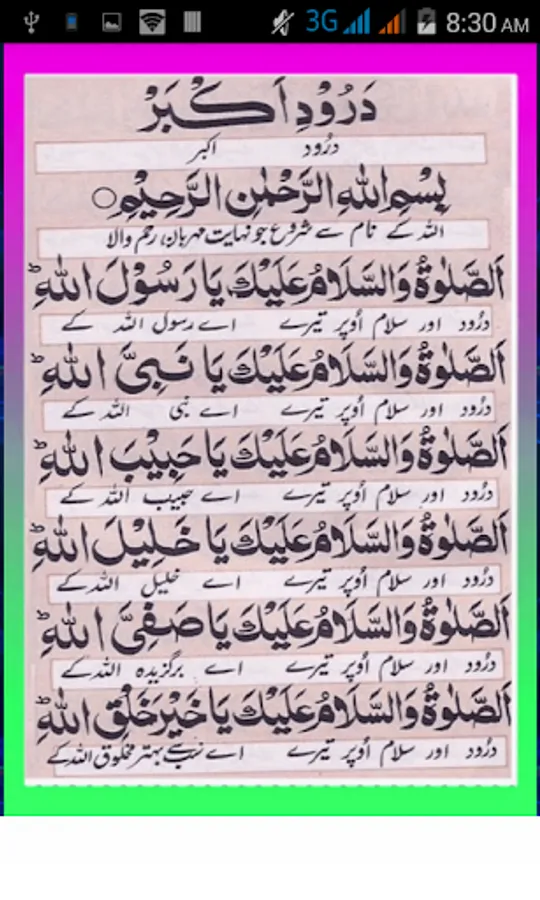 3G 8:30 AM
دَرُوْدِ اَکْبَرْ
درُود اکبر
بِسْمِ اللهِ الرَّحْمٰنِ الرَّحِيْمِ ○
اللہ کے نام سے شروع جو نہایت مہربان، رحم والا
اَلصَّلٰوةُ وَالسَّلَامُ عَلَيْكَ يَا رَسُوْلَ اللهِ ؕ
درُود اور سلام اُوپر تیرے اے رسول اللہ کے
اَلصَّلٰوةُ وَالسَّلَامُ عَلَيْكَ يَا نَبِىَّ اللهِ ؕ
درُود اور سلام اُوپر تیرے اے نبی اللہ کے
اَلصَّلٰوةُ وَالسَّلَامُ عَلَيْكَ يَا حَبِيْبَ اللهِ ؕ
درُود اور سلام اُوپر تیرے اے حبیب اللہ کے
اَلصَّلٰوةُ وَالسَّلَامُ عَلَيْكَ يَا خَلِيْلَ اللهِ ؕ
درُود اور سلام اُوپر تیرے اے خلیل اللہ کے
اَلصَّلٰوةُ وَالسَّلَامُ عَلَيْكَ يَا صَفِىَّ اللهِ ؕ
درُود اور سلام اُوپر تیرے اے برگزیدہ اللہ کے
اَلصَّلٰوةُ وَالسَّلَامُ عَلَيْكَ يَا خَيْرَ خَلْقِ اللهِ ؕ
درُود اور سلام اُوپر تیرے اے سب سے بہتر مخلوق اللہ کے